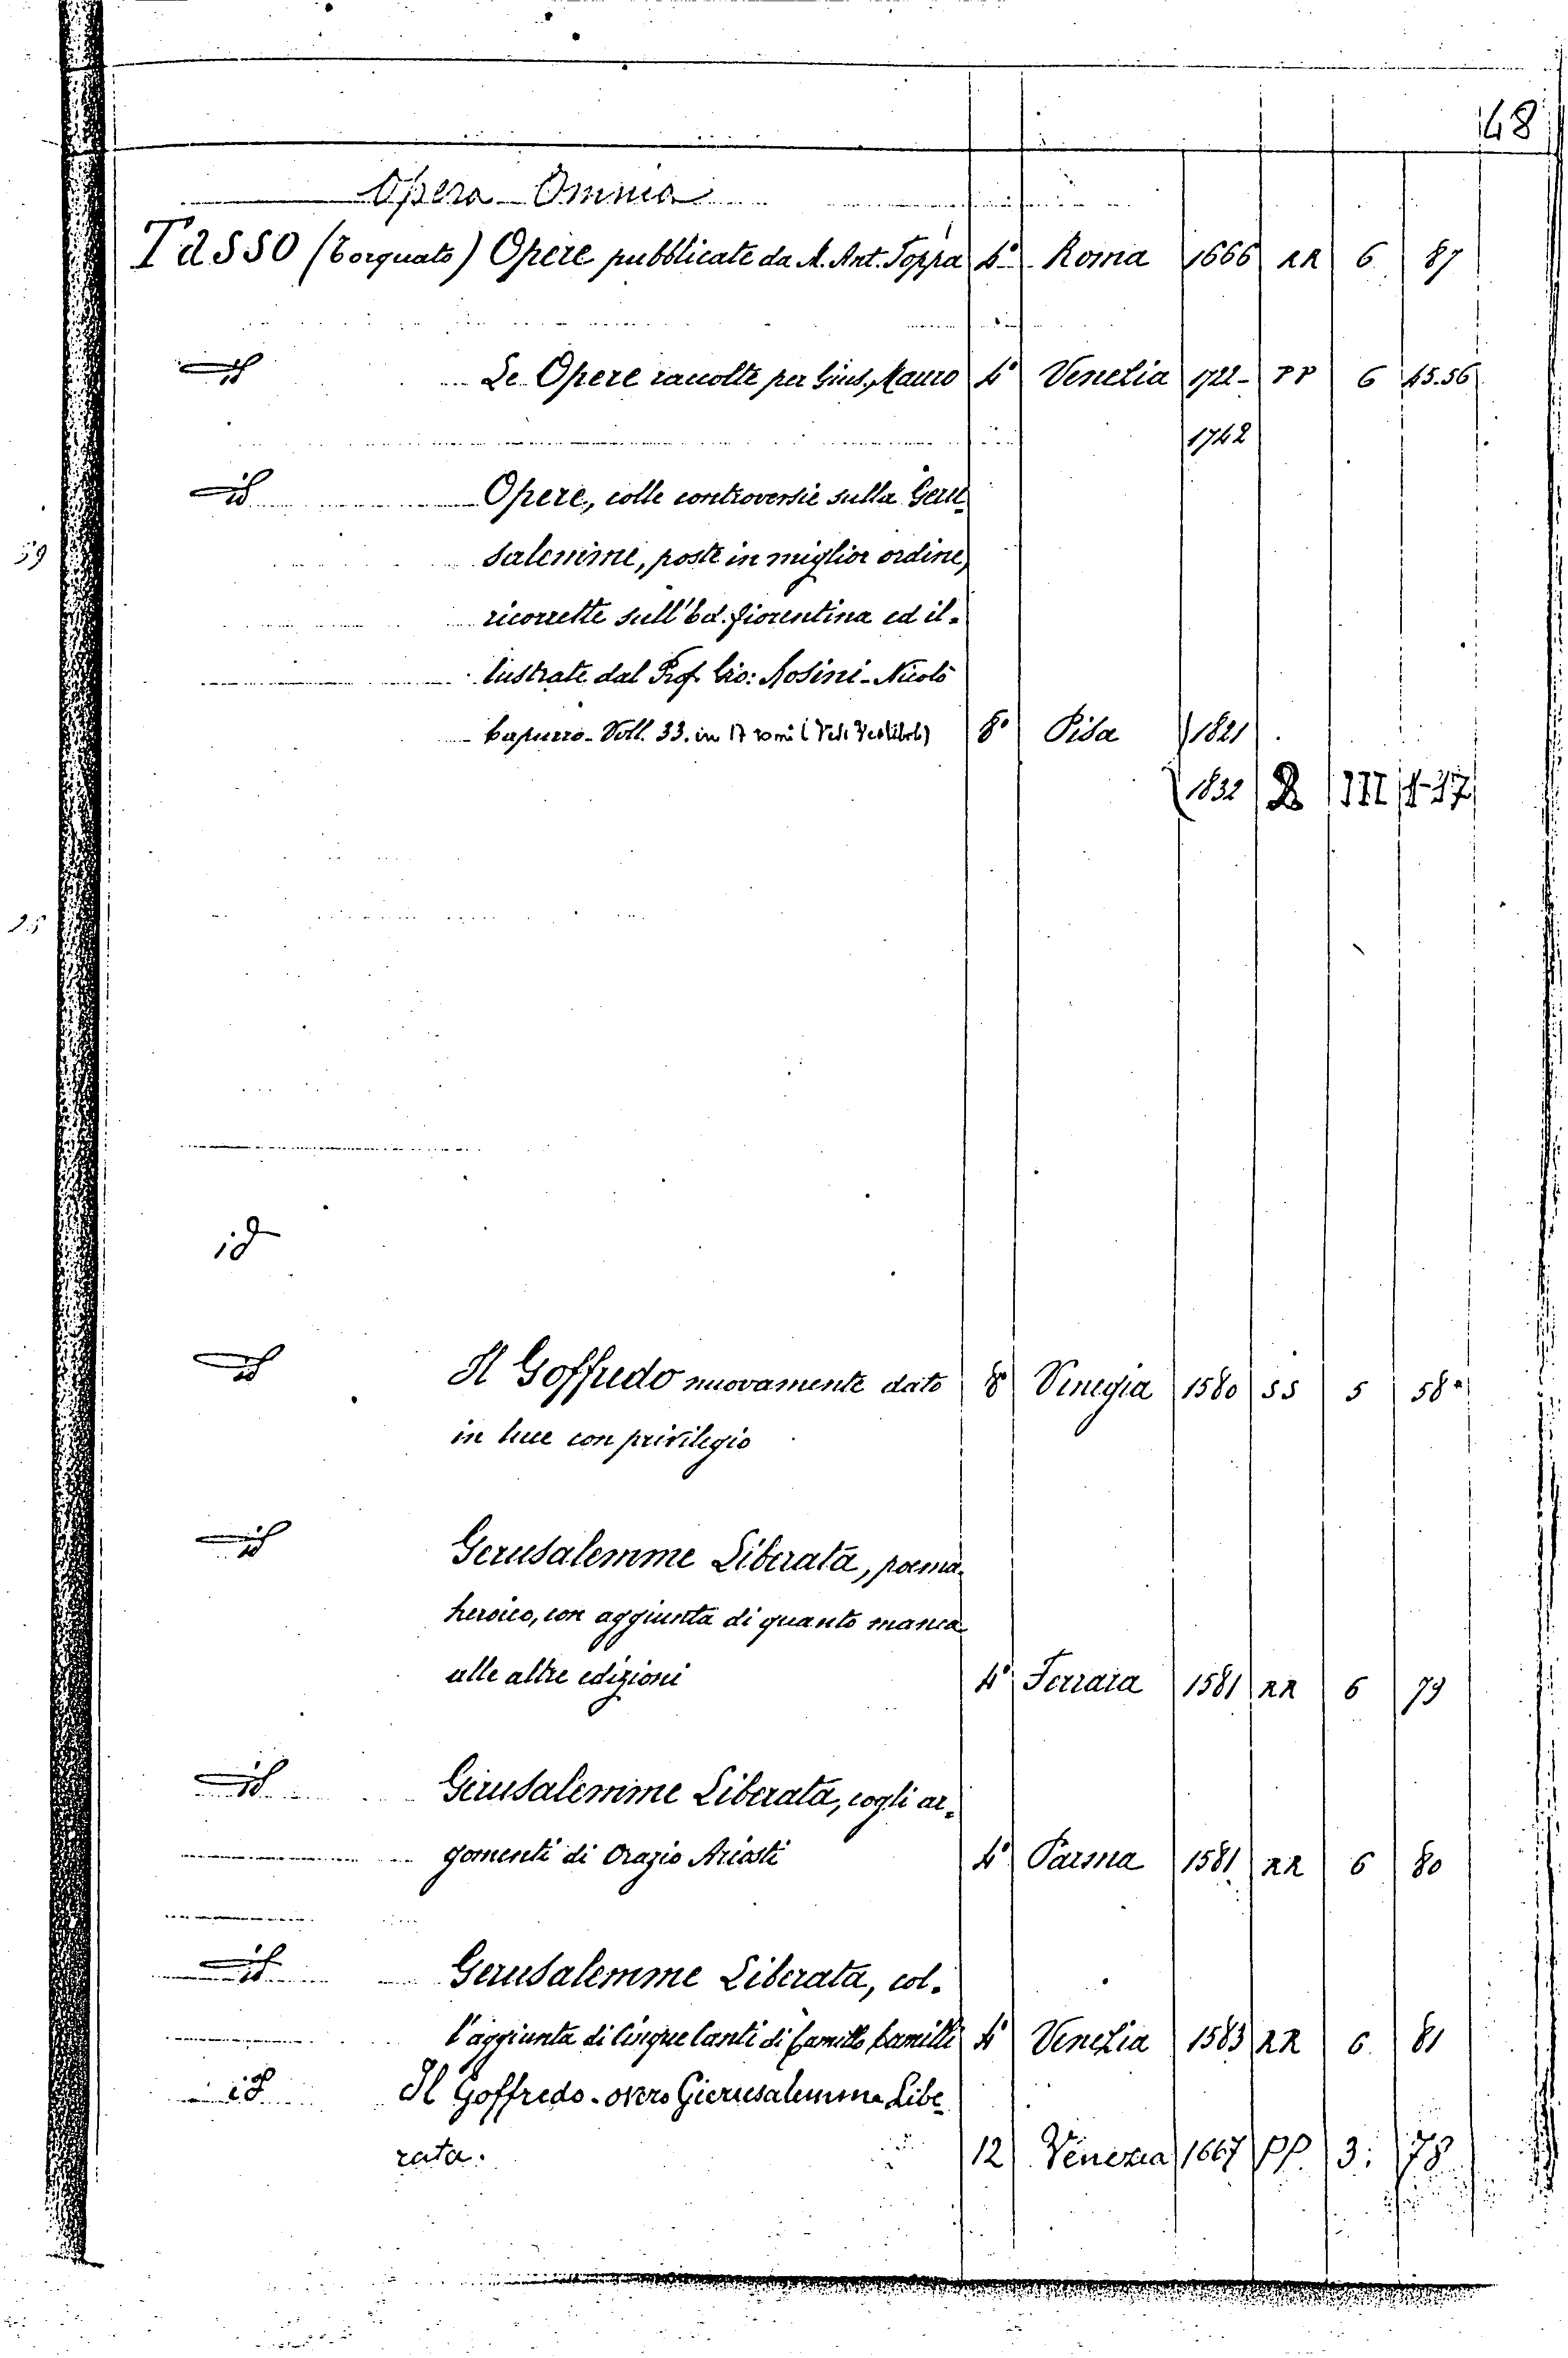 48
Opera Omnia
Tasso (Torquato) Opere pubblicate da M. Ant. Foppa 4° Roma 1666 RR 6 87
id Le Opere raccolte per Gius. Mauro 4° Venezia 1722- PP 6 45.56
1742
id Opere, colle controversie sulla Geru-
59
salemme, poste in miglior ordine,
ricorrette sull'Ed. fiorentina ed il-
lustrate dal Prof. Gio: Rosini - Nicolò
Capurro - Voll. 33. in 17 tomi 8° Pisa 1821
1832 III 1-17
id
id Il Goffredo nuovamente dato 8° Vinegia 1580 SS 5 58*
in luce con privilegio
id Gerusalemme Liberata, poema
heroico, con aggiunta di quanto manca
alle altre edizioni 4° Ferrara 1581 RR 6 79
id Gerusalemme Liberata, cogli ar-
gomenti di Orazio Ariosti 4° Parma 1581 RR 6 80
id Gerusalemme Liberata, col-
l'aggiunta di Cinque Canti di Camillo Camilli 4° Venezia 1583 RR 6 81
id Il Goffredo - overo Gierusalemme Libe-
rata. 12 Venezia 1667 PP 3: 78